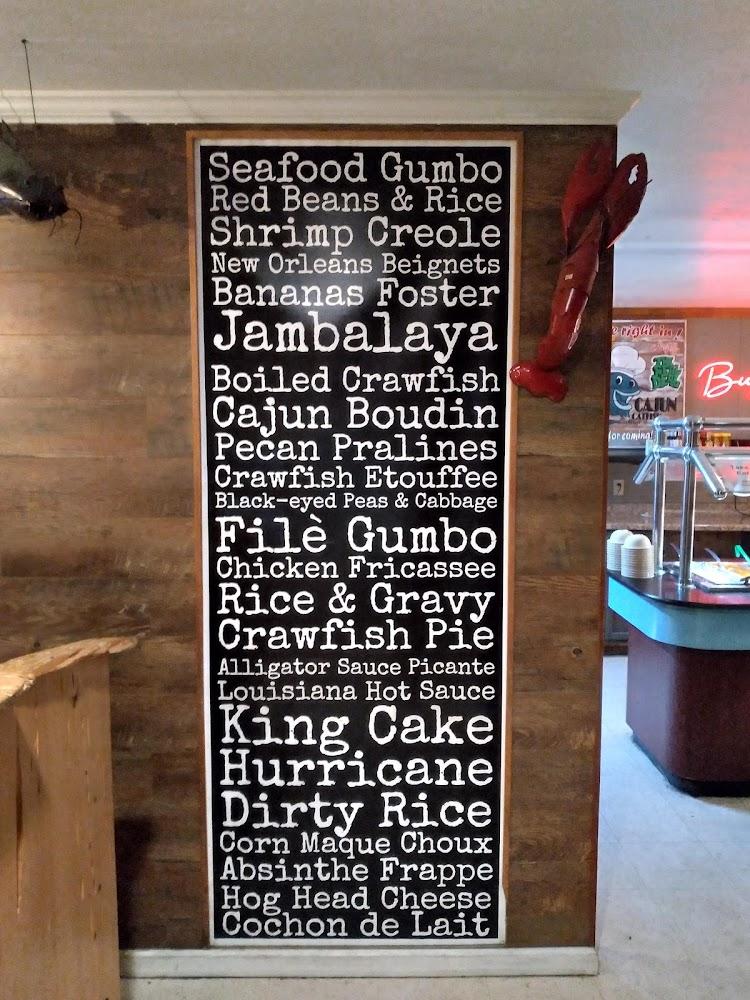 Seafood Gumbo
Red Beans & Rice
Shrimp Creole
New Orleans Beignets
Bananas Foster
Jambalaya
Boiled Crawfish
Cajun Boudin
Pecan Pralines
Crawfish Etouffee
Black-eyed Peas & Cabbage
Filè Gumbo
Chicken Fricassee
Rice & Gravy
Crawfish Pie
Alligator Sauce Picante
Louisiana Hot Sauce
King Cake
Hurricane
Dirty Rice
Corn Maque Choux
Absinthe Frappe
Hog Head Cheese
Cochon de Lait
right in!
CAJUN
for coming!